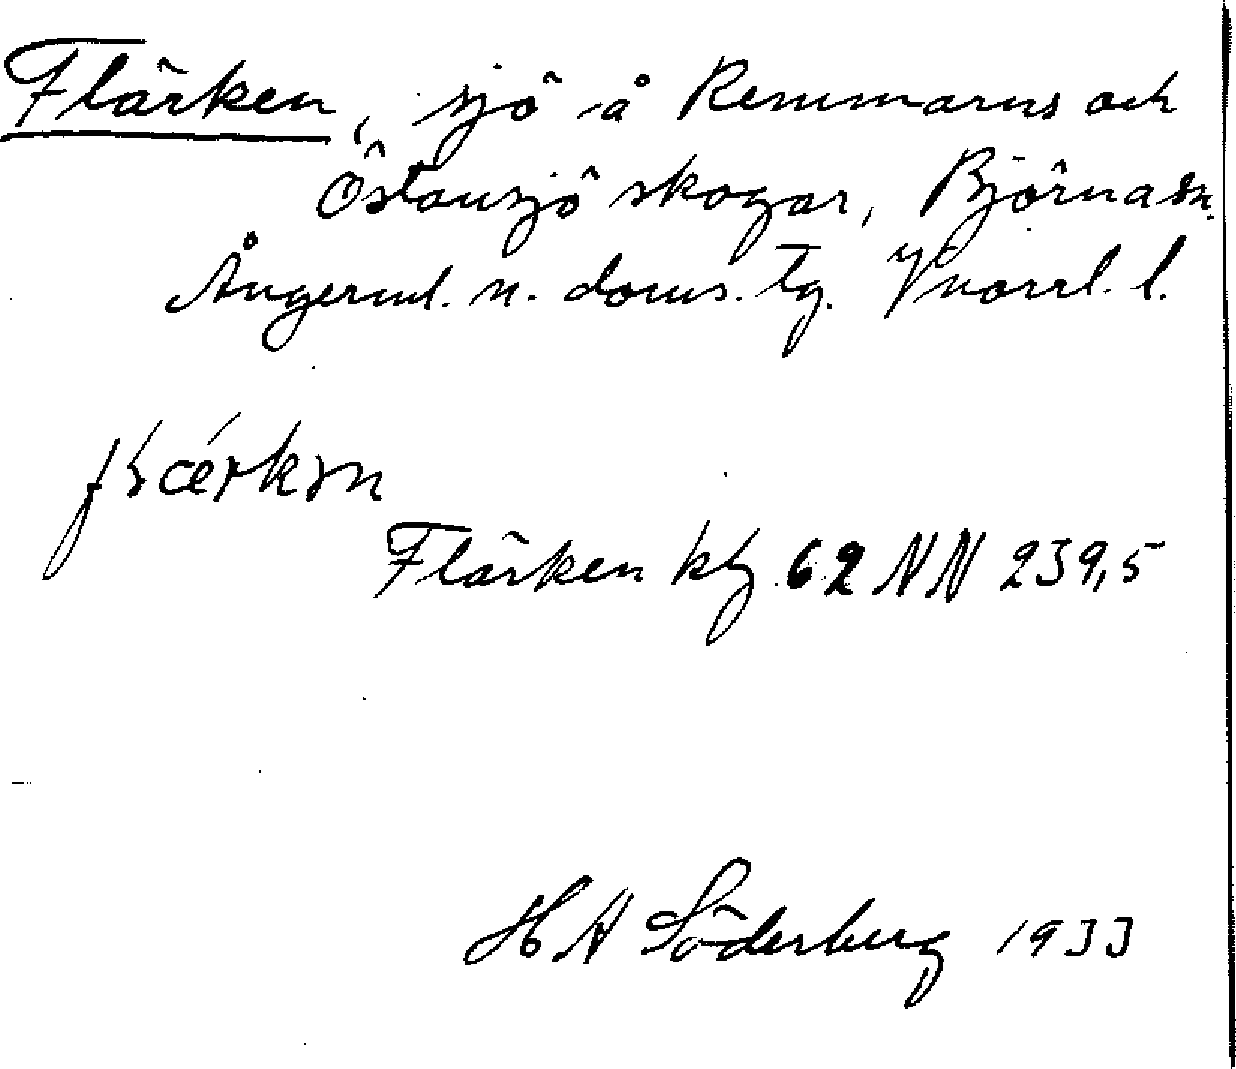 Flärken, sjö å Remmarns och
Östansjö skogar, Björna sn.
Ångerml. n. doms. tg. Vnorrl. l.
Flärken kbl 62 NN 239,5
H A Söderberg 1933